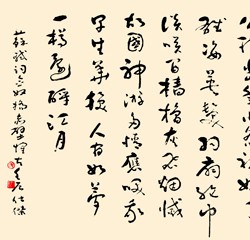 雄姿英發羽扇綸巾
談笑間檣櫓灰飛煙滅
故國神遊多情應笑我
早生華髮人間如夢
一樽還酹江月
蘇軾詞念奴嬌赤壁懷古